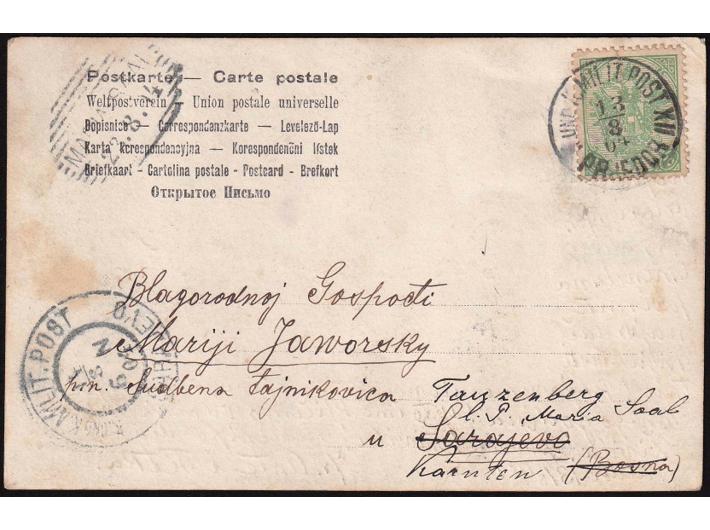 Postkarte — Carte postale
Weltpostverein — Union postale universelle
Dopisnice — Correspondenzkarte — Levelező-Lap
Karta korespondencyjna — Korespondenční lístek
Briefkaart - Cartolina postale - Postcard - Brefkort
Открытое Письмо
UND K. MILIT. POST XII
13
8
04
PRJEDOR
23.8.
MILIT. POST
Blagorodnoj Gospođi
Mariji Jaworsky
Sudbena tajnikovica
Tanzenberg
l. P. Maria Saal
u Sarajevo
Kärnten (Bosna)